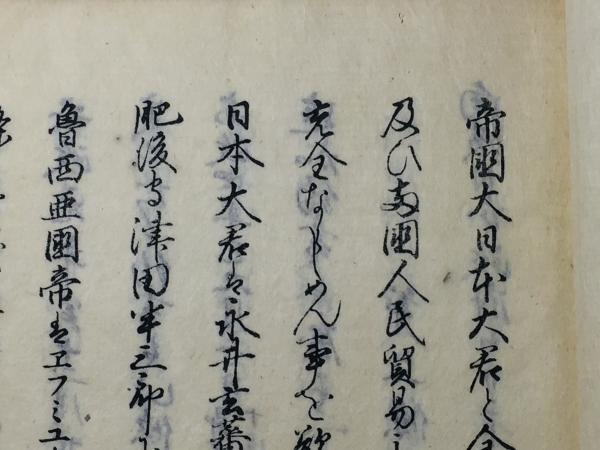 帝國大日本大君と全
及ひ両國人民貿易之
充全ならしめん事を欲
日本大君は永井玄蕃
肥後守津田半三郎
魯西亜國帝はヱフミユ